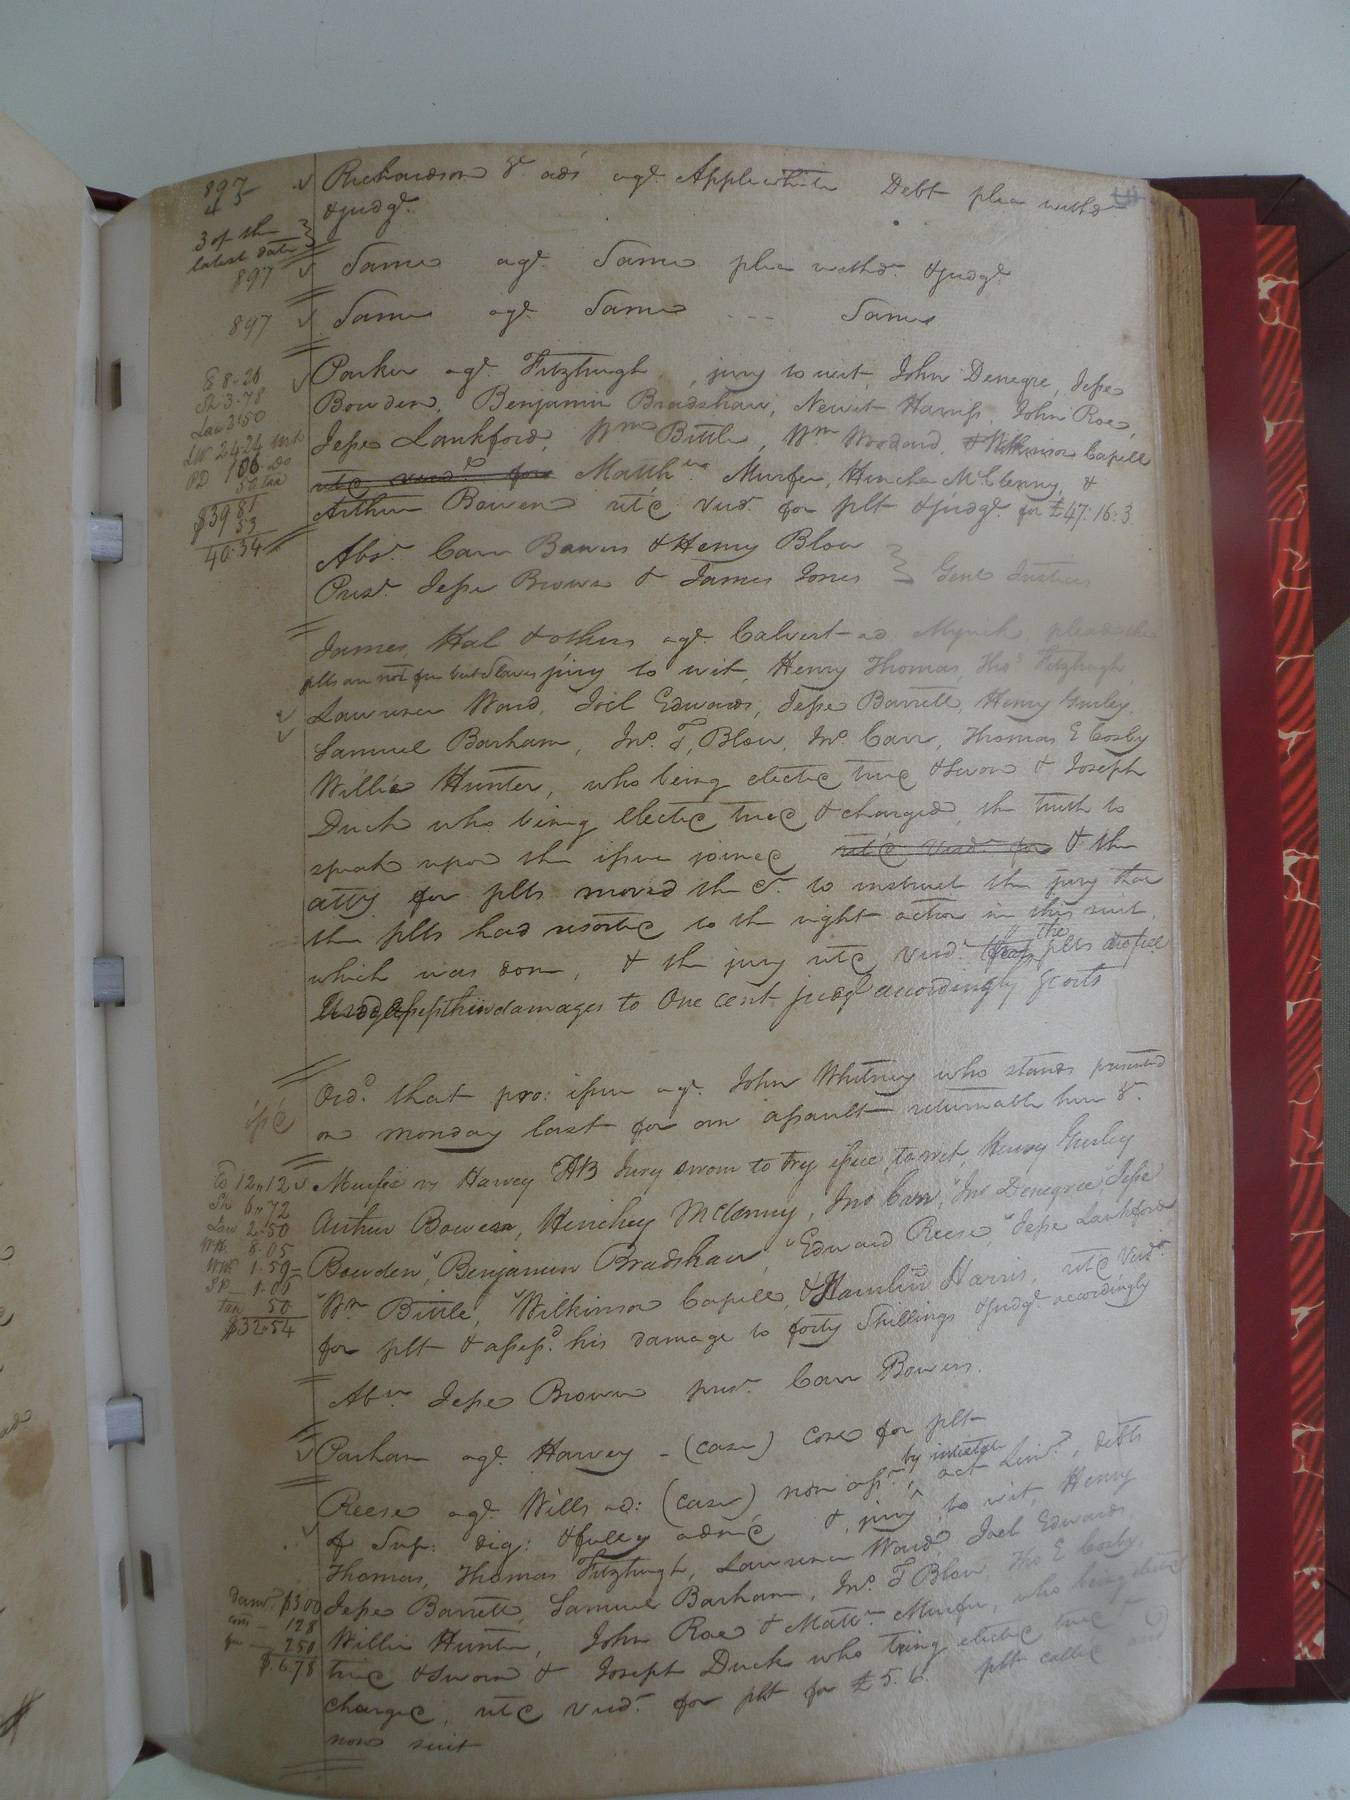 897
45
3 of the
latest date
Richardson &c. ads agt. Applewhite Debt plea withd
&judgt.
897
Same agt. Same plea withd. &judgt.
897
Same agt. Same --- Same
C 8-20
Sh 3.78
Law 2.50
LW 24.24
PD 1.06 do
$39 81
53
40.34
Parker agt. Fitzhugh, jury to wit, John Denegre, Jesse
Bowden, Benjamin Bradshaw, Newit Harris, John Roe,
Jesse Lankford, Wm Bittle, Wm Woodard, & Wilkinson Capell
retd verdt. for Matthew Murfee, Hincha McClenny, &
Arthur Bowen retd verdt. for plt &judgt. for £47.16.3.
Abst. Carr Bowers & Henry Blow
Prest. Jesse Browne & James Jones } Gent Justices
James, Hal & others agt. Calvert ad. Myrick pleads the
plts are not free but slaves jury to wit, Henry Thomas, Thos Fitzhugh
Lawrence Ward, Joel Edwards, Jesse Barrett, Henry Gurley,
Samuel Barham, Jno. T, Blow, Jno. Carr, Thomas E Cosby
Willie Hunter, who being elected tried &sworn & Joseph
Duck who being elected tried & charged, the truth to
speak upon the issue joined retd verdt. for & the
atty for plts moved the Ct. to instruct the jury that
the plts had resorted to the right action in this suit,
which was done, & the jury retd verdt. the plts are free
damages to One cent judgt accordingly & costs
issd
Ord. that pro: issue agt. John Whitney who stands presented
on monday last for an assault returnable here &c.
CD 12,,12
Sh 6,,72
Law 2,,50
WH. 8.05
WW 1.59
SP 1.00
Tax 50
$32.54
Murfee vs Harvey A&B Jury sworn to try issue, to wit, Henry Gurley
Arthur Bowen, Hinchey McClenny, Jno Carr, "Jno Denegree, "Jesse
Bowden, "Benjamin Bradshaw, "Edward Reese "Jesse Lankford
"Wm Bittle, "Wilkinson Capell, & Hamlin Harris, retd verdt.
for plt & assessd. his damage to forty shillings &judgt accordingly
Abst Jesse Browne prest. Carr Bowers.
Parham agt. Harvey - (case) Cono for plt
by intestate
Reese agt. Wills ad: (case) non asst., act Limn., debts
of Sup: dig: &fully admd & jury to wit, Henry
Thomas, Thomas Fitzhugh, Lawrence Ward, Joel Edwards,
Dams. $300
128
250
$.678
Jesse Barrett, Samuel Barham, Jno. T Blow, Tho E Cosby,
Willie Hunter, John Roe & Mattw. Murfee, who being elected
tried &sworn & Joseph Duck who being elected tried &
charged, retd verdt. for plt for £5.6. plt called and
non suit